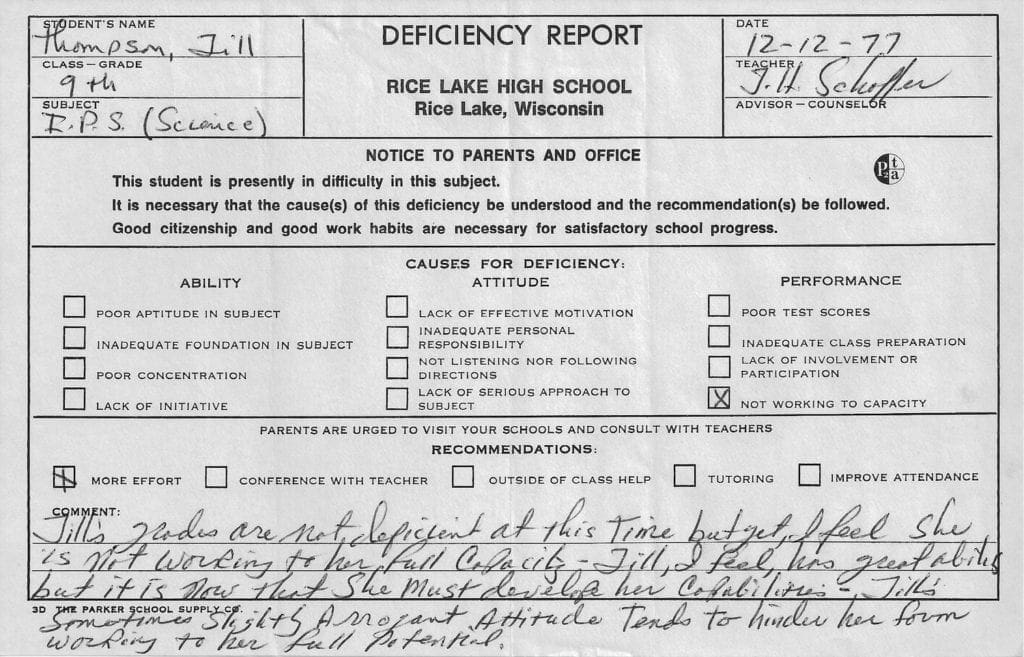 STUDENT'S NAME
Thompson, Jill
CLASS – GRADE
9th
SUBJECT
I.P.S. (Science)
DEFICIENCY REPORT
RICE LAKE HIGH SCHOOL
Rice Lake, Wisconsin
DATE
12-12-77
TEACHER
J.H. Schoffer
ADVISOR – COUNSELOR
NOTICE TO PARENTS AND OFFICE
This student is presently in difficulty in this subject.
It is necessary that the cause(s) of this deficiency be understood and the recommendation(s) be followed.
Good citizenship and good work habits are necessary for satisfactory school progress.
Pta
CAUSES FOR DEFICIENCY:
ABILITY
POOR APTITUDE IN SUBJECT
INADEQUATE FOUNDATION IN SUBJECT
POOR CONCENTRATION
LACK OF INITIATIVE
ATTITUDE
LACK OF EFFECTIVE MOTIVATION
INADEQUATE PERSONAL
RESPONSIBILITY
NOT LISTENING NOR FOLLOWING
DIRECTIONS
LACK OF SERIOUS APPROACH TO
SUBJECT
PERFORMANCE
POOR TEST SCORES
INADEQUATE CLASS PREPARATION
LACK OF INVOLVEMENT OR
PARTICIPATION
X NOT WORKING TO CAPACITY
PARENTS ARE URGED TO VISIT YOUR SCHOOLS AND CONSULT WITH TEACHERS
RECOMMENDATIONS:
MORE EFFORT CONFERENCE WITH TEACHER OUTSIDE OF CLASS HELP TUTORING IMPROVE ATTENDANCE
COMMENT:
Jill's grades are not deficient at this Time but yet, I feel She
is Not working to her full Capacity – Jill, I feel, has great ability
but it is Now that She Must develope her Capabilities – Jill's
3D THE PARKER SCHOOL SUPPLY CO.
Sometimes Slightly Arrogant Attitude Tends to hinder her form
working to her full Potential.